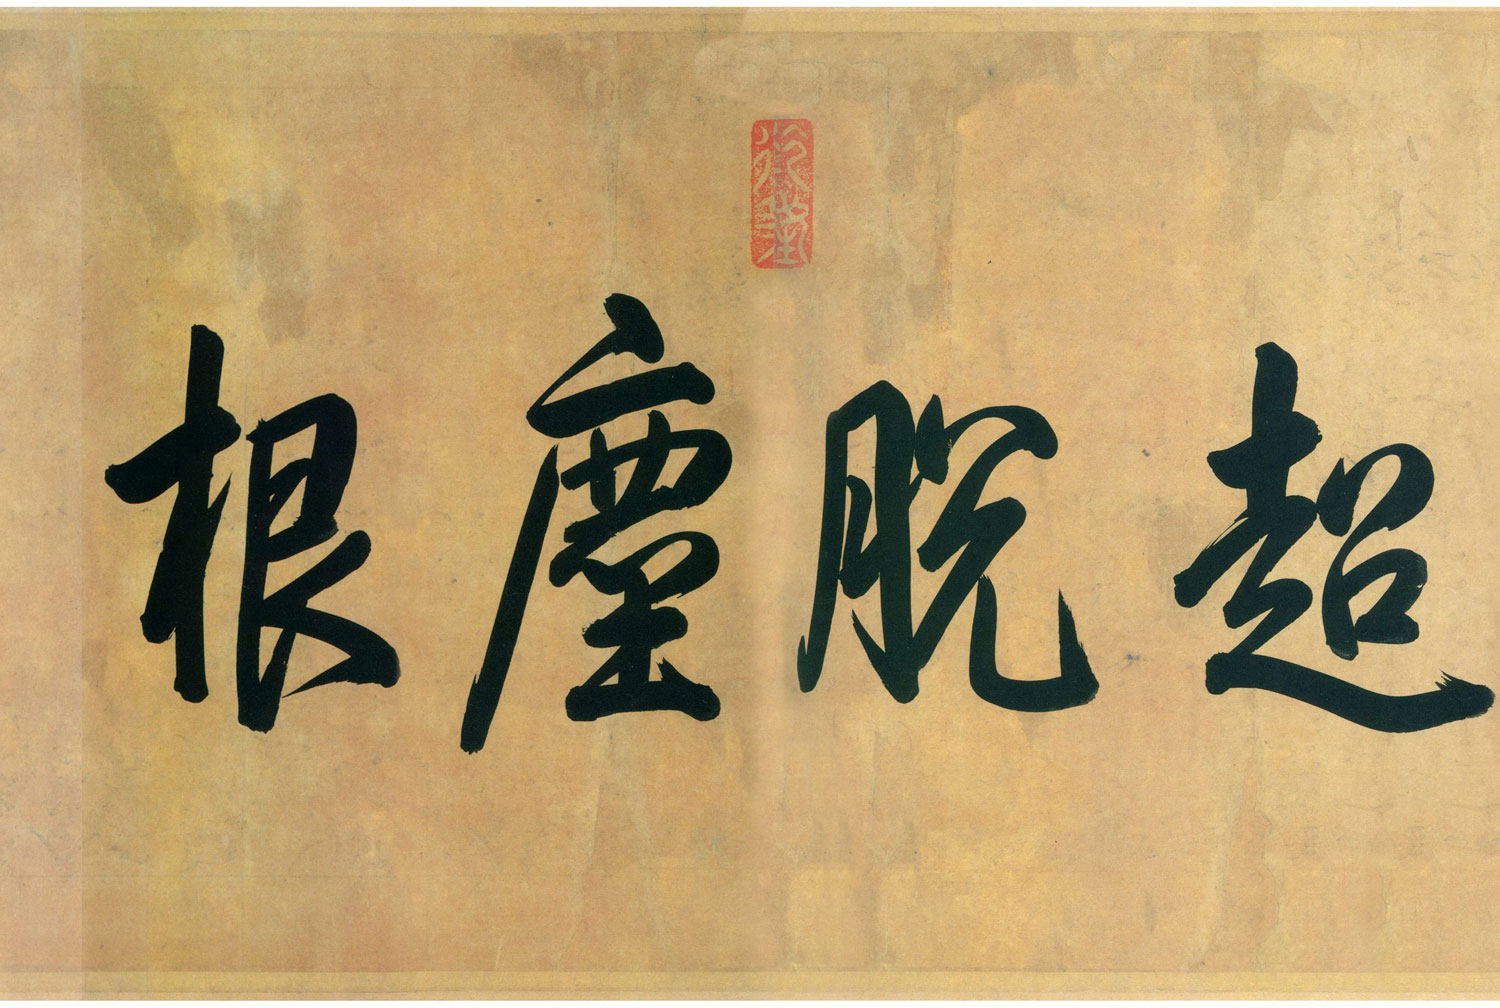 超脫塵根